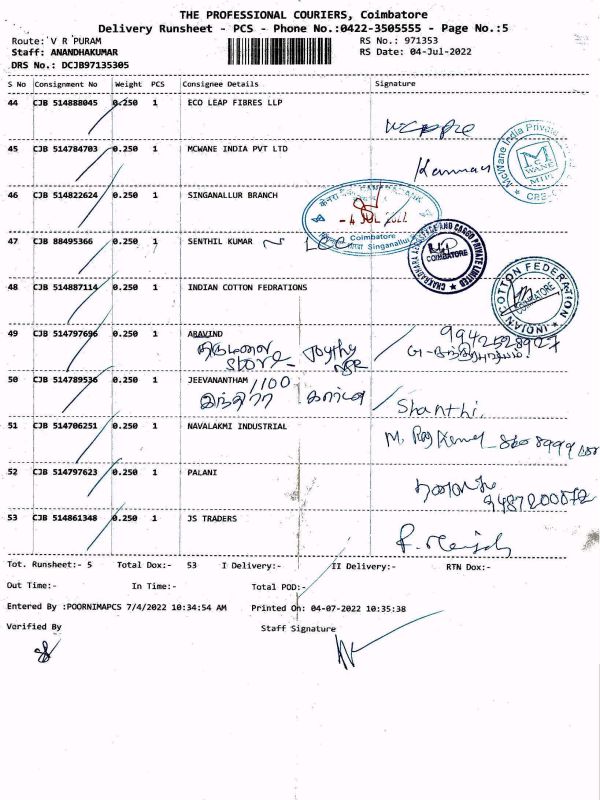 THE PROFESSIONAL COURIERS, Coimbatore
Delivery Runsheet - PCS - Phone No.:0422-3505555 - Page No.:5
Route: V R PURAM
RS No.: 971353
Staff: ANANDHAKUMAR
RS Date: 04-Jul-2022
DRS No.: DCJB97135305
S No Consignment No Weight PCS Consignee Details Signature
44 CJB 514888045 0.250 1 ECO LEAP FIBRES LLP
45 CJB 514784703 0.250 1 MCWANE INDIA PVT LTD Kannan
McWane India Private
McWANE
MIPL
46 CJB 514822624 0.250 1 SINGANALLUR BRANCH
- 4 JUL 2022
Coimbatore
Singanallur
47 CJB 88495366 0.250 1 SENTHIL KUMAR
CHAKRADHARA AEROSPACE AND CARGO PRIVATE LIMITED
COIMBATORE
48 CJB 514887114 0.250 1 INDIAN COTTON FEDRATIONS
INDIAN COTTON FEDERATION
COIMBATORE
49 CJB 514797696 0.250 1 ARAVIND 9942528927
store
50 CJB 514789536 0.250 1 JEEVANANTHAM 1100
Shanthi.
51 CJB 514706251 0.250 1 NAVALAKMI INDUSTRIAL
52 CJB 514797623 0.250 1 PALANI
9487200072
53 CJB 514861348 0.250 1 JS TRADERS
Tot. Runsheet:- 5 Total Dox:- 53 I Delivery:- II Delivery:- RTN Dox:-
Out Time:- In Time:- Total POD:-
Entered By :POORNIMAPCS 7/4/2022 10:34:54 AM Printed On: 04-07-2022 10:35:38
Verified By Staff Signature